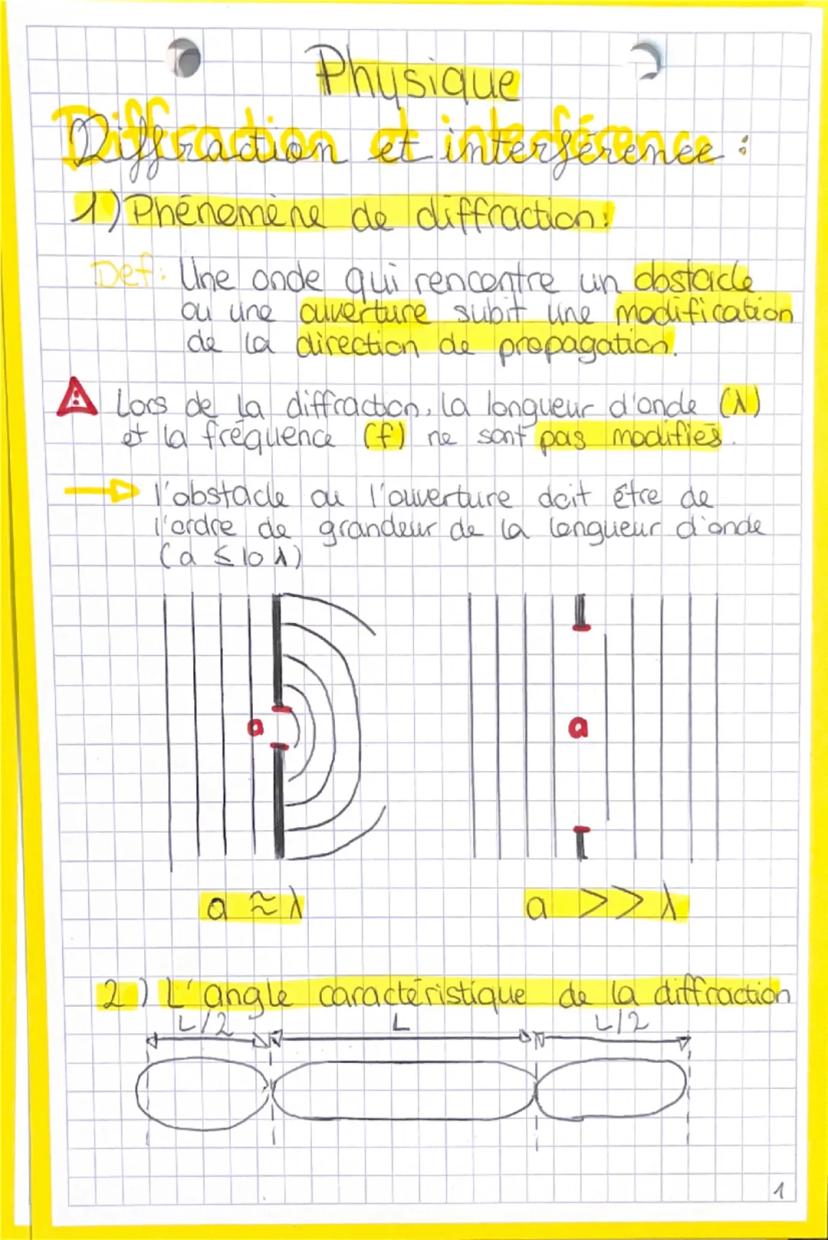 Physique
Diffraction et interférence :
1) Phénomène de diffraction :
Def : Une onde qui rencontre un obstacle
ou une ouverture subit une modification
de la direction de propagation.
Lors de la diffraction, la longueur d'onde (λ)
et la fréquence (f) ne sont pas modifiés.
l'obstacle ou l'ouverture doit être de
l'ordre de grandeur de la longueur d'onde
(a ≤ 10 λ)
a
a
a ≈ λ
a >> λ
2) L'angle caractéristique de la diffraction
L/2 L L/2
1